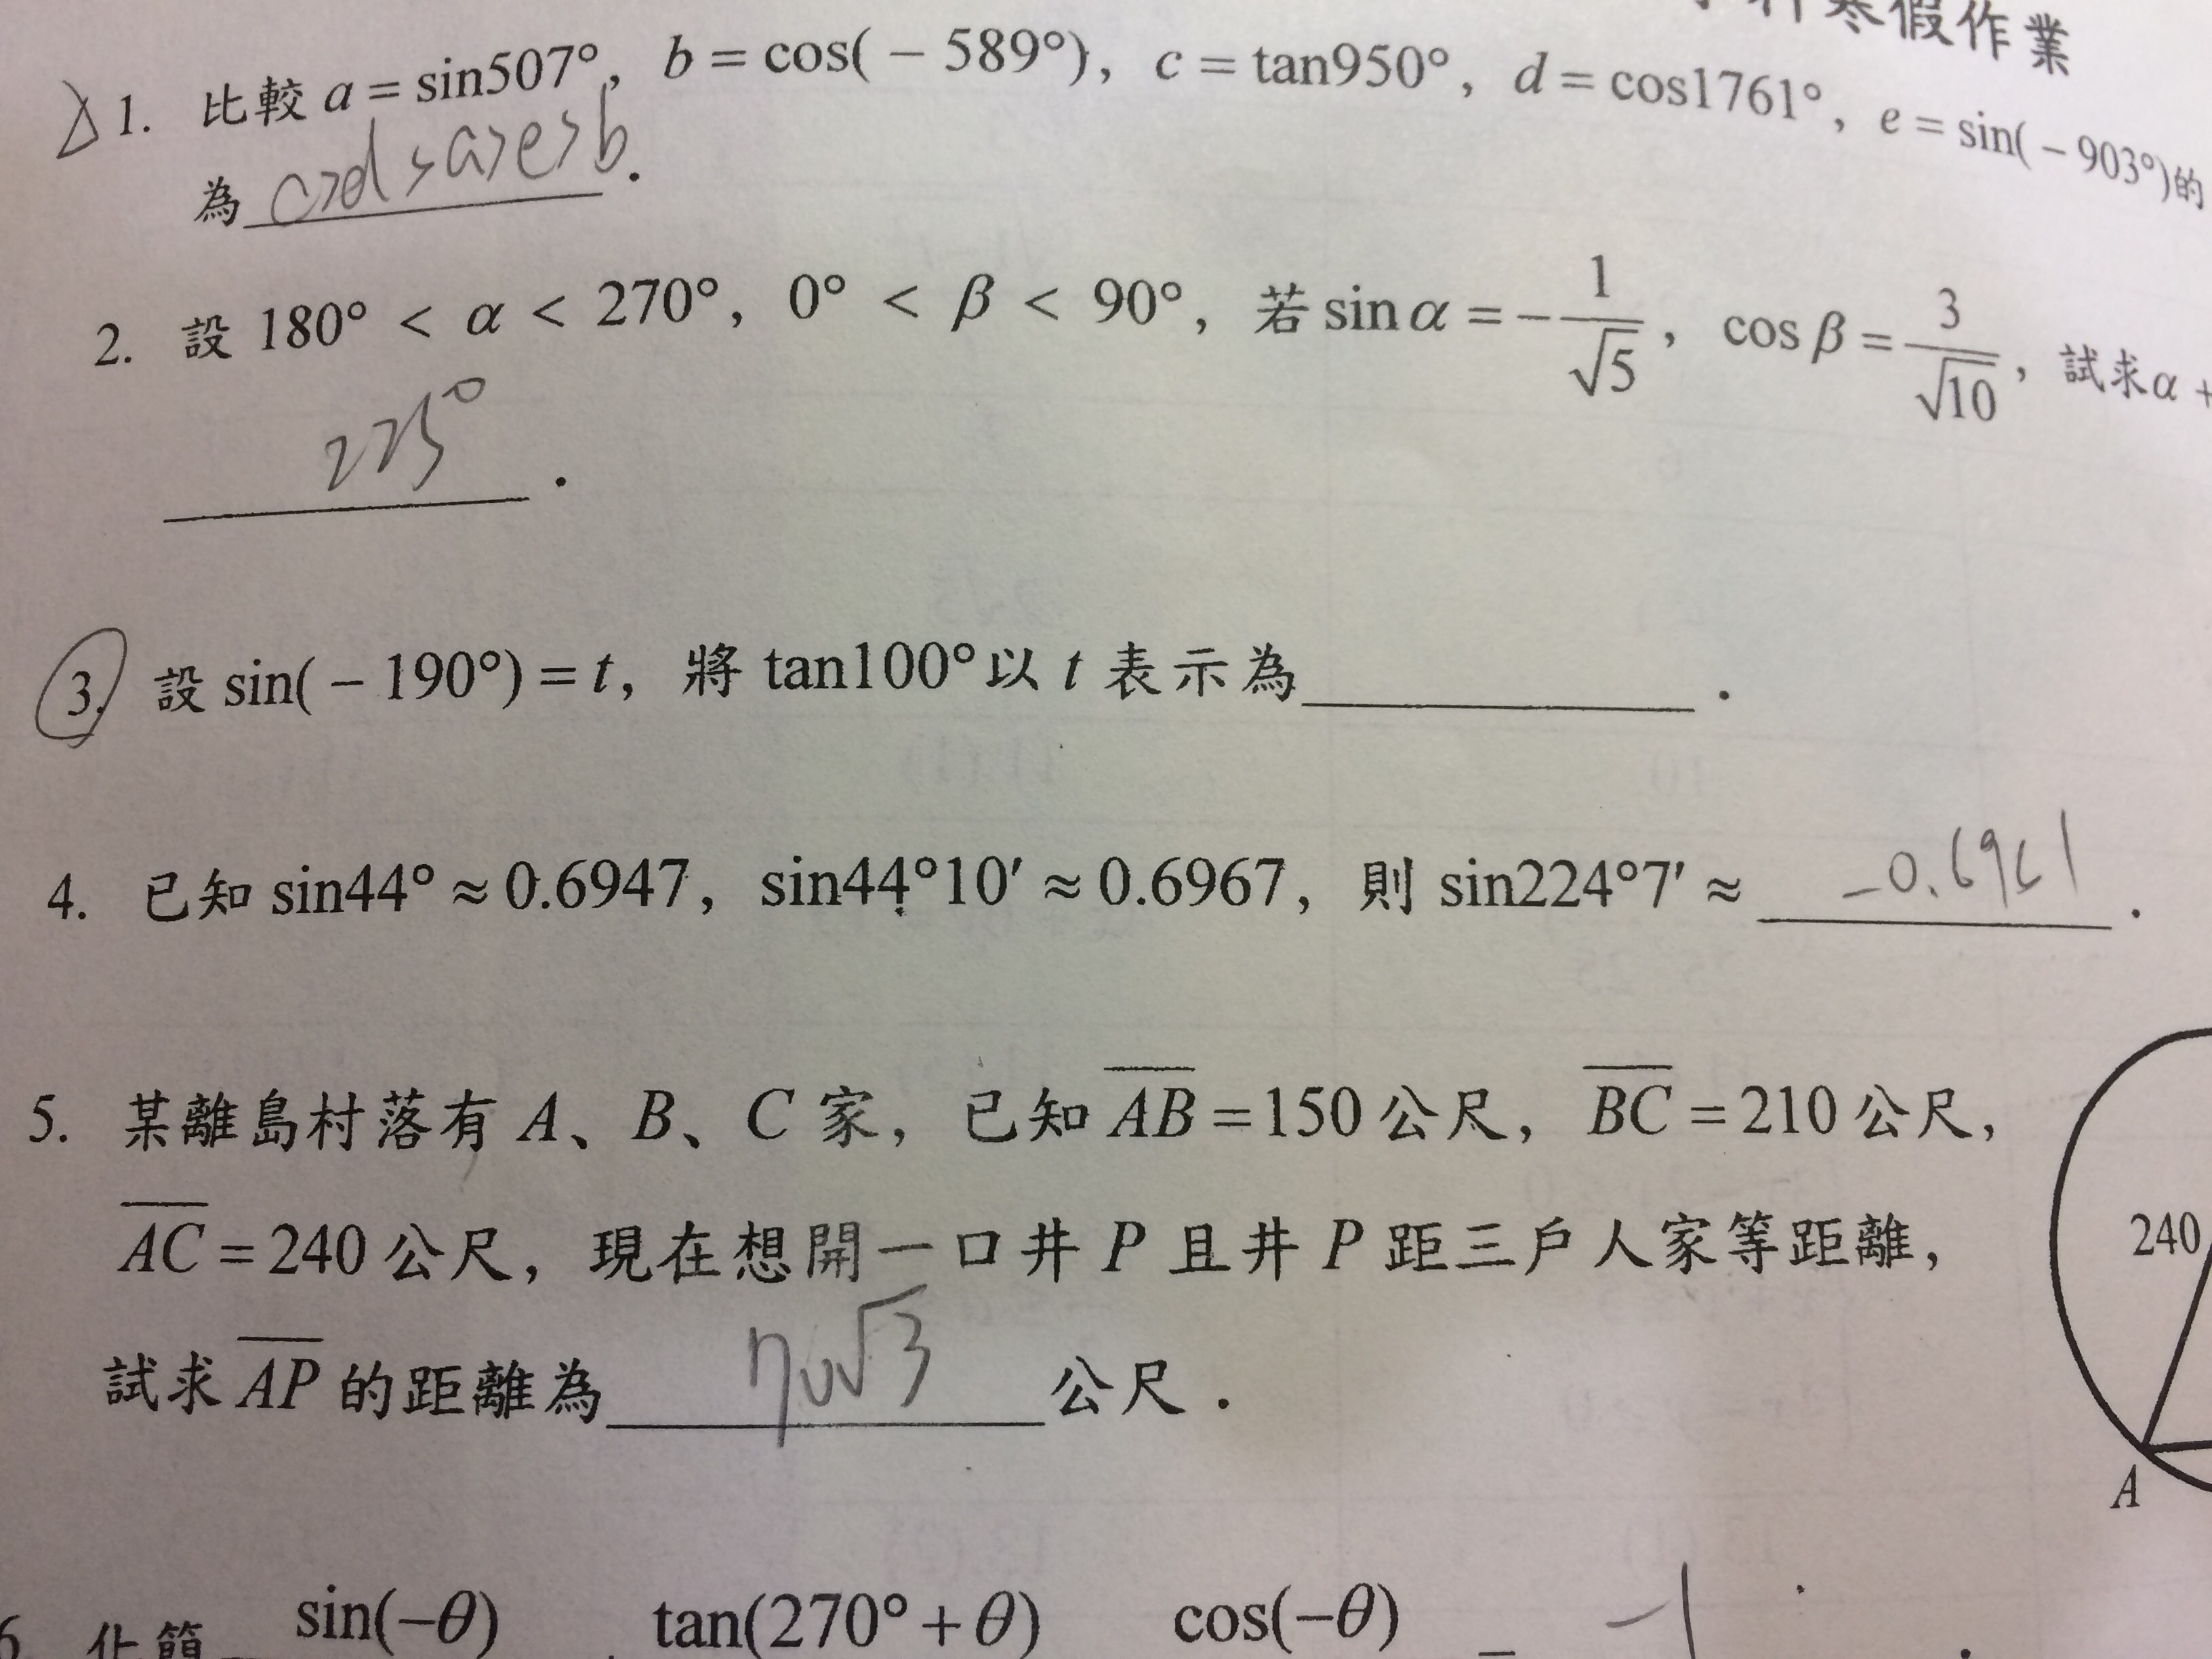 寒假作業
1. 比較 a = sin507°, b = cos( − 589°), c = tan950°, d = cos1761°, e = sin( − 903°)的
為 c>d>a>e>b .
2. 設 180° < α < 270°, 0° < β < 90°, 若 sin α = −1/√5, cos β = 3/√10, 試求α +
225° .
3. 設 sin( − 190°) = t, 將 tan100° 以 t 表示為 .
4. 已知 sin44° ≈ 0.6947, sin44°10′ ≈ 0.6967, 則 sin224°7′ ≈ −0.6961 .
5. 某離島村落有 A、B、C 家, 已知 AB = 150 公尺, BC = 210 公尺,
AC = 240 公尺, 現在想開一口井 P 且井 P 距三戶人家等距離,
試求 AP 的距離為 70√3 公尺 .
240
A
6. 化簡 sin(−θ) tan(270° + θ) cos(−θ) = −1 .